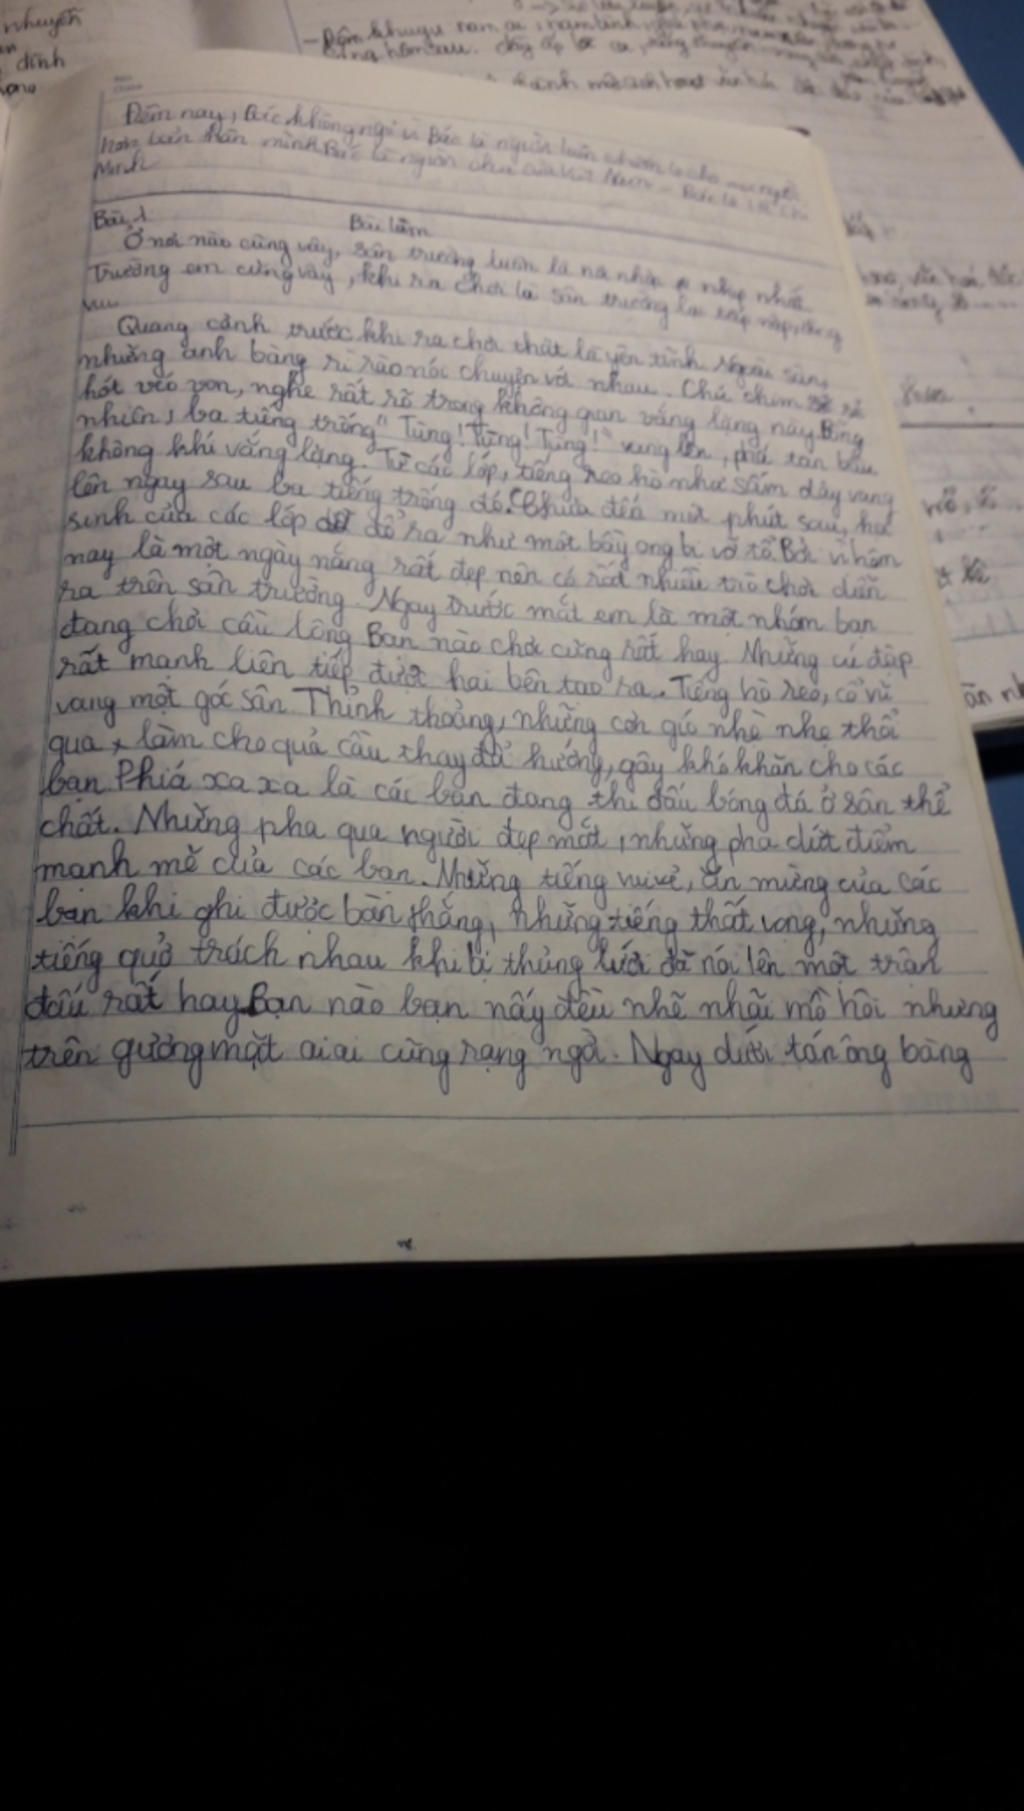 nhuyễn
dính
Đêm nay, Bác không ngủ vì Bác là người luôn chăm lo cho mọi người
hơn bản thân mình. Bác là người cha của Việt Nam - Bác là Hồ Chí
Minh
Bài 1
Bài làm
Ở nơi nào cũng vậy, sân trường luôn là nơi nhộn nhịp nhất.
Trường em cũng vậy, khi ra chơi là sân trường lại tấp nập, đông
vui.
Quang cảnh trước khi ra chơi thật là yên tĩnh. Ngoài sân,
những anh bàng rì rào nói chuyện với nhau. Chú chim
hót véo von, nghe rất rõ trong không gian vắng lặng này. Bỗng
nhiên, ba tiếng trống "Tùng! Tùng! Tùng!" vang lên, phá tan bầu
không khí vắng lặng. Từ các lớp, tiếng reo hò như sấm dậy vang
lên ngay sau ba tiếng trống đó. Chưa đến một phút sau, học
sinh của các lớp đổ ra như một bầy ong bị vỡ tổ. Bởi vì hôm
nay là một ngày nắng rất đẹp nên có rất nhiều trò chơi diễn
ra trên sân trường. Ngay trước mắt em là một nhóm bạn
đang chơi cầu lông. Bạn nào chơi cũng rất hay. Những cú đập
rất mạnh liên tiếp được hai bên tạo ra. Tiếng hò reo, cổ vũ
vang một góc sân. Thỉnh thoảng, những cơn gió nhè nhẹ thổi
qua, làm cho quả cầu thay đổi hướng, gây khó khăn cho các
bạn. Phiá xa xa là các bạn đang thi đấu bóng đá ở sân thể
chất. Những pha qua người đẹp mắt, những pha dứt điểm
mạnh mẽ của các bạn. Những tiếng vui vẻ, ăn mừng của các
bạn khi ghi được bàn thắng, những tiếng thất vọng, những
tiếng quở trách nhau khi bị thủng lưới đã nói lên một trận
đấu rất hay. Bạn nào bạn nấy đều nhễ nhãi mồ hôi nhưng
trên gương mặt ai ai cũng rạng ngời. Ngay dưới tán ông bàng